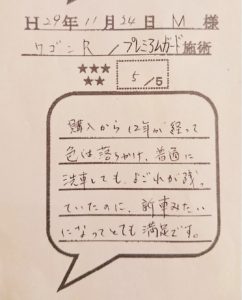 H29年11月24日 M 様
ワゴンR / プレミアムガード施術
★★★
★★
5/5
購入から12年が経って
色は落ちかけ、普通に
洗車しても、よごれが残っ
ていたのに、新車みたい
になってとても満足です。